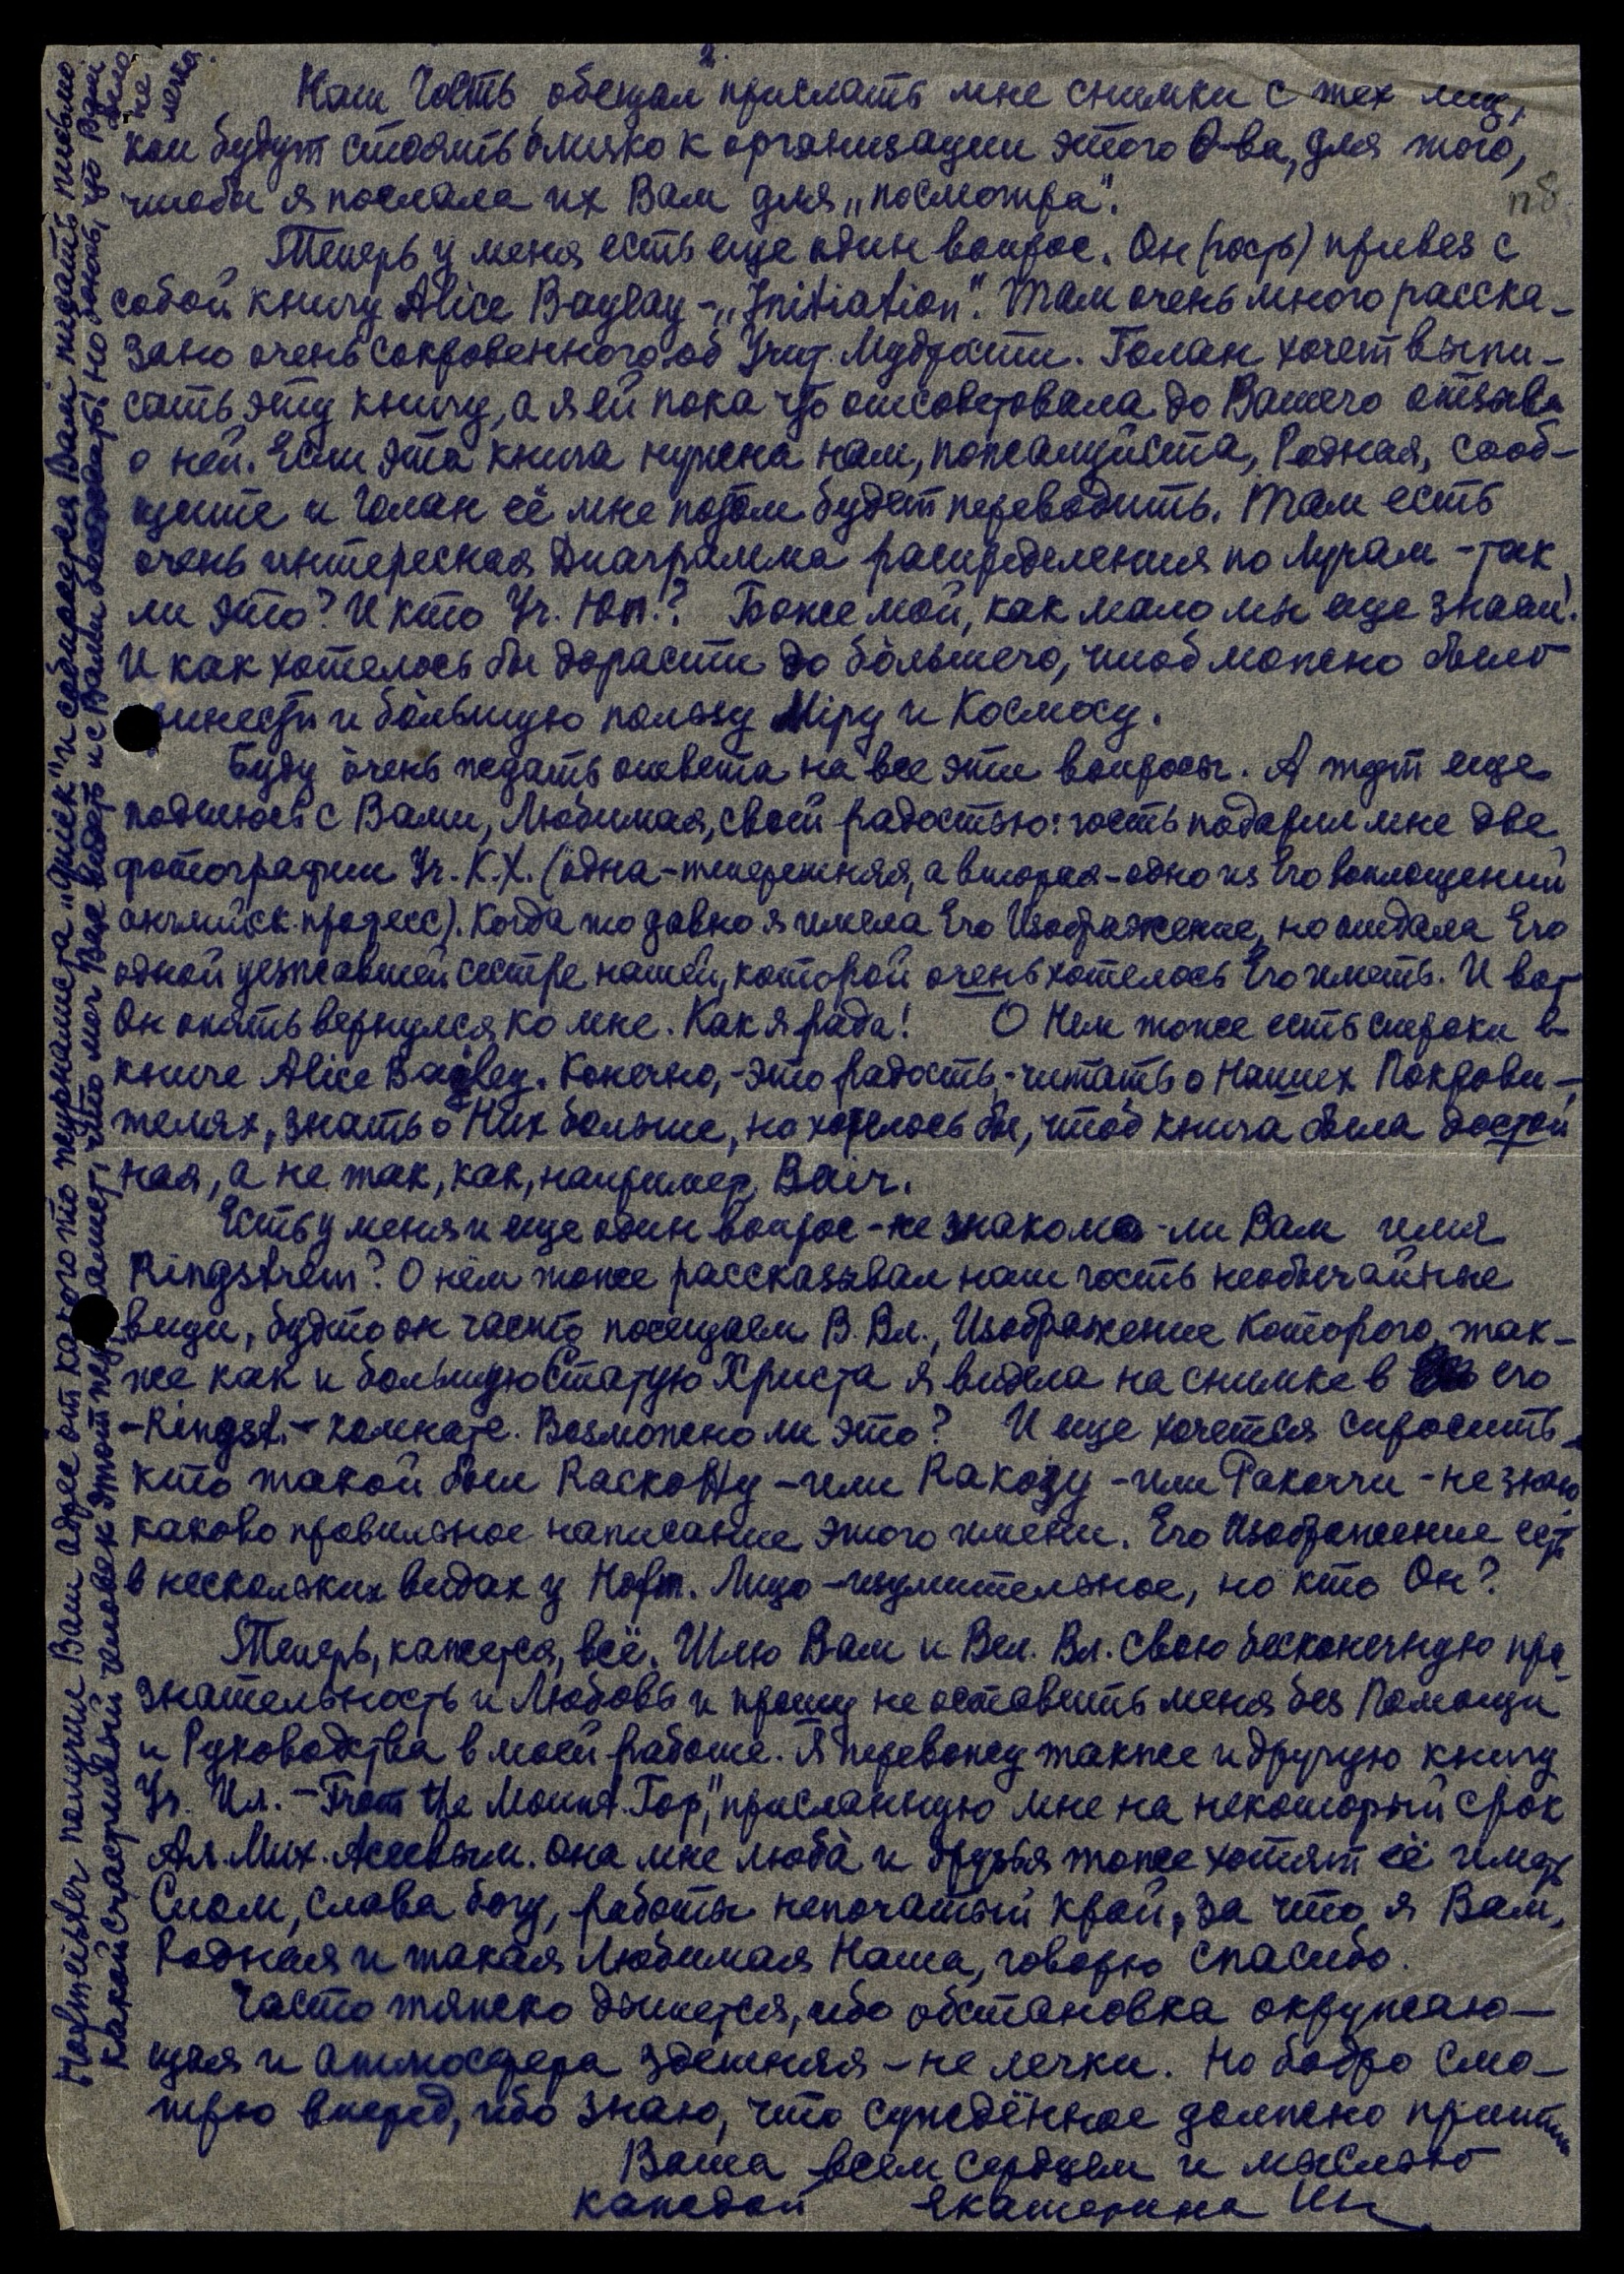 2.
Наш Гость обещал прислать мне снимки с тех лиц,
кои будут стоять близко к организации этого О-ва, для того,
чтобы я послала их Вам для „посмотра".
п8.
Теперь у меня есть еще один вопрос. Он (гость) привез с
собой книгу Alice Baylay - „Initiation". Там очень много расска-
зано очень сокровенного об Учит. Мудрости. Голан хочет выпи-
сать эту книгу, а я ей пока что отсоветовала до Вашего отзыва
о ней. Если эта книга нужна нам, пожалуйста, Родная, сооб-
щите и Голан её мне потом будет переводить. Там есть
очень интересная Диаграмма распределения по Лучам - так
ли это? И кто Уч. Юп.? Боже мой, как мало мы еще знаем!
И как хотелось бы дорасти до бо́льшего, чтоб можно было
принести и бо́льшую пользу Мiру и Космосу.
Буду очень ждать ответа на все эти вопросы. А тут еще
поделюсь с Вами, Любимая, своей радостью: гость подарил мне две
фотографии Уч. К.Х. (одна - теперешняя, а вторая - одно из Его воплощений
английск. професс). Когда то давно я имела Его Изображение, но отдала Его
одной уезжавшей сестре нашей, которой очень хотелось Его иметь. И вот
Он опять вернулся ко мне. Как я рада! О Нем тоже есть строки в
книге Alice Bagley. Конечно, - это радость, - читать о Наших Покрови-
телях, знать о Них больше, но хотелось бы, чтоб книга была достой
ная, а не так, как, например, Вair.
Есть у меня и еще один вопрос - не знакомо-ли Вам имя
Ringstrem? О нём тоже рассказывал наш гость необычайные
вещи, будто он часто посещаем В. Вл., Изображение Которого, так-
же как и большую Статую Христа я видела на снимке в его
- Ringst. - комнате. Возможно ли это? И еще хочется спросить
кто такой был Rackotty - или Rakozy - или Ракоччи - не знаю
каково правильное написание этого имени. Его Изображение есть
в нескольких видах у Hofm. Лицо - изумительное, но кто Он?
Теперь, кажется, всё. Шлю Вам и Вел. Вл. свою бесконечную при
знательность и Любовь и прошу не оставить меня без Помощи
и Руководства в моей работе. Я перевожу также и другую книгу
Уч. Ил. - „From the Mount. Top", присланную мне на некоторый срок
Ал. Мих. Асеевым. Она мне люба́ и друзья тоже хотят её иметь
Слом, слава богу, работы непочатый край, за что я Вам,
Родная и такая Любимая Наша, говорю спасибо.
Часто тяжско дышется, ибо обстановка окружаю-
щая и атмосфера здешняя - не легки. Но бодро смо-
трю вперед, ибо знаю, что суждённое должно притти
Ваша всем сердцем и мыслью
каждой Екатерина
Hofmeister получил Ваш адрес от какого то журналиста „Quick" и собирается Вам писать письмо
Какой счастливый человек этот журналист, что мог Вас видеть и с Вами беседовать, но боюсь, что Вам
было
не
легко.